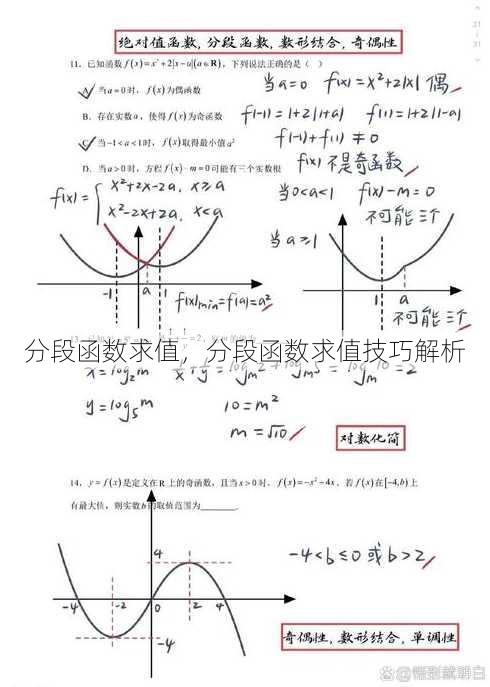 绝对值函数, 分段函数, 数形结合, 奇偶性
11. 已知函数 f(x)=x²+2|x-a|(a∈R), 下列说法正确的是（ ）
当a=0 f(x)=x²+2|x| 偶
A. 当a=0时, f(x)为偶函数
B. 存在实数a, 使得f(x)为奇函数
f(-1)=1+2|1+a| f(1)=1+2|1-a|
C. 当-1<a<1时, f(x)取得最小值a²
f(-1)+f(1)≠0
D. 当a>0时, 方程f(x)-m=0可能有三个实数根
f(x) 不是奇函数
f(x)= x²+2x-2a, x≥a
x²-2x+2a, x<a
当0<a<1 f(x)-m=0
不可能三个
当a≥1
-1 a 1
f(x)min=f(a)=a²
1 a
不可能三个
分段函数求值，分段函数求值技巧解析
x=log₂m 1/x+1/y=logm2+logm5=logm10=2
y=log₅m 10=m²
m=√10
对数化简
14. y=f(x)是定义在R上的奇函数, 且当x>0时, f(x)=-x²+4x, 若f(x)在[-4,b)上
有最大值, 则实数b的取值范围为
-4<b≤0 或 b>2
4
-4 -2 0 2 4
-4
奇偶性, 数形结合, 单调性